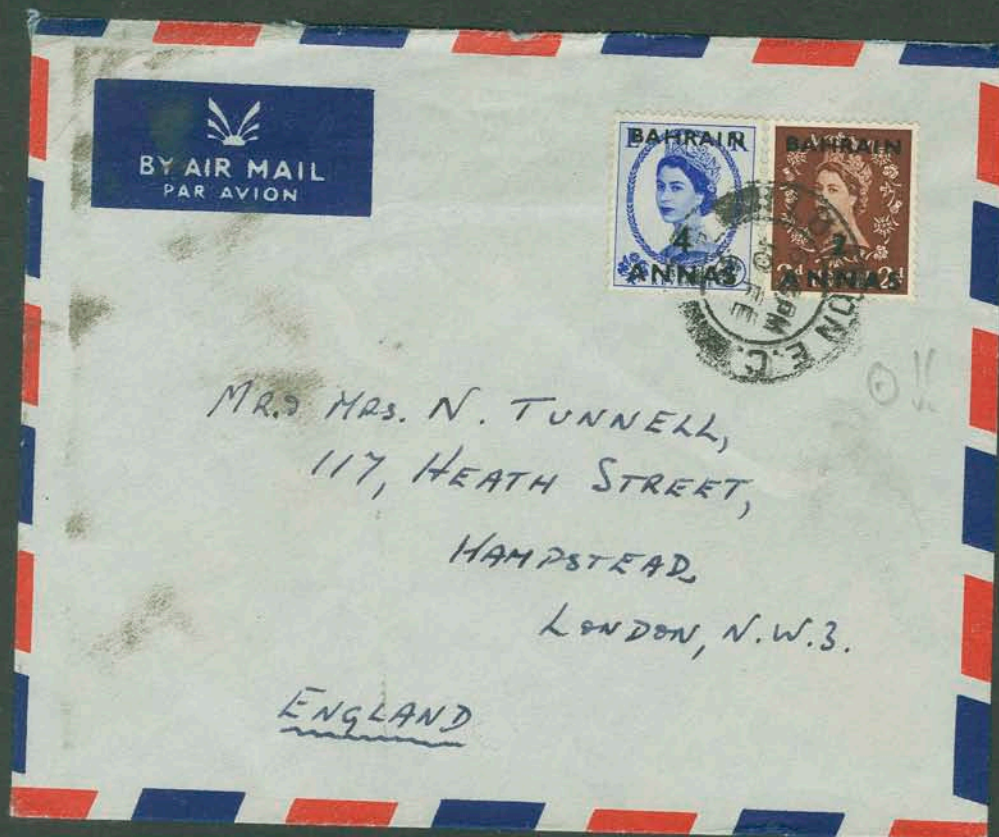 BY AIR MAIL
PAR AVION
BAHRAIN
4
ANNAS
BAHRAIN
2
ANNAS
2d 2d
ON E.C.
MR. & MRS. N. TUNNELL,
117, HEATH STREET,
HAMPSTEAD,
LONDON, N.W.3.
ENGLAND
OK